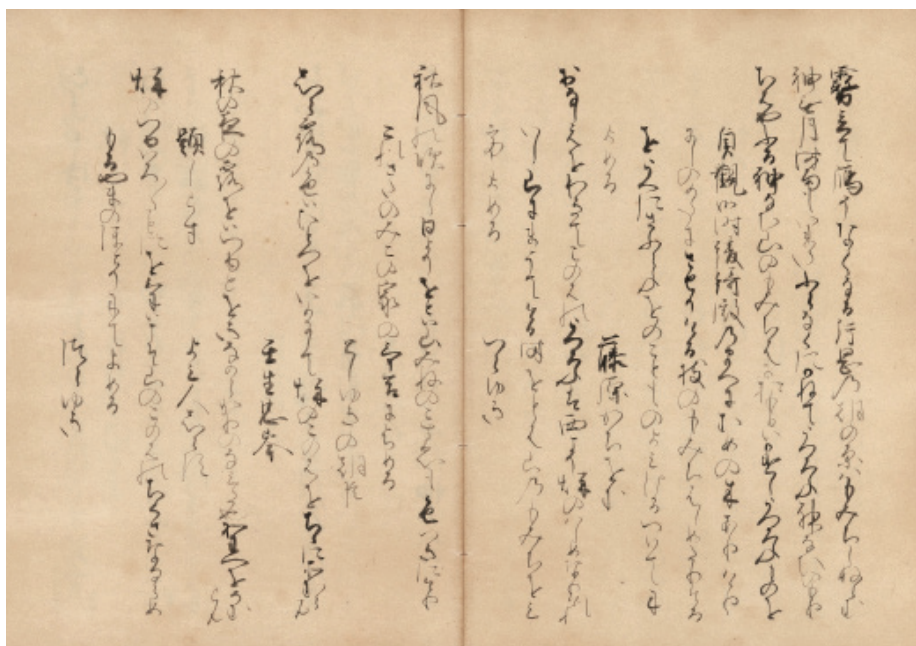 霧立て鴈そなくなる片岡の朝の原はもみちしぬらむ
神無月時雨もいまたふらなくにかねてうつろふ神なひのもり
ちはやふる神なひ山のもみちはに思ひはかけしうつろふものを
貞観御時綾綺殿のまへにむめの木ありけり
にしのかたにさせりける枝のもみちはしめたりける
をうへにさふらふをのことものよみけるついてに
よめる
藤原かちをむ
おなしえをわきてこのはのうつろふは西こそ秋のはしめなりけれ
いし山にまうてける時をとは山のもみちをみ
てよめる
つらゆき
秋風の吹にし日よりをとは山みねのこすゑも色つきにけり
これさたのみこの家の哥合によめる
としゆきの朝臣
しら露の色はひとつをいかにして秋のこのはをちゝにそむらん
壬生忠岑
秋の夜の露をはつゆとをきなからかりの涙や野へをそむらん
題しらす
よみ人しらす
秋のつゆいろ〱ことにをけはこそ山のこのはのちくさなるらめ
もる山のほとりにてよめる
つらゆき